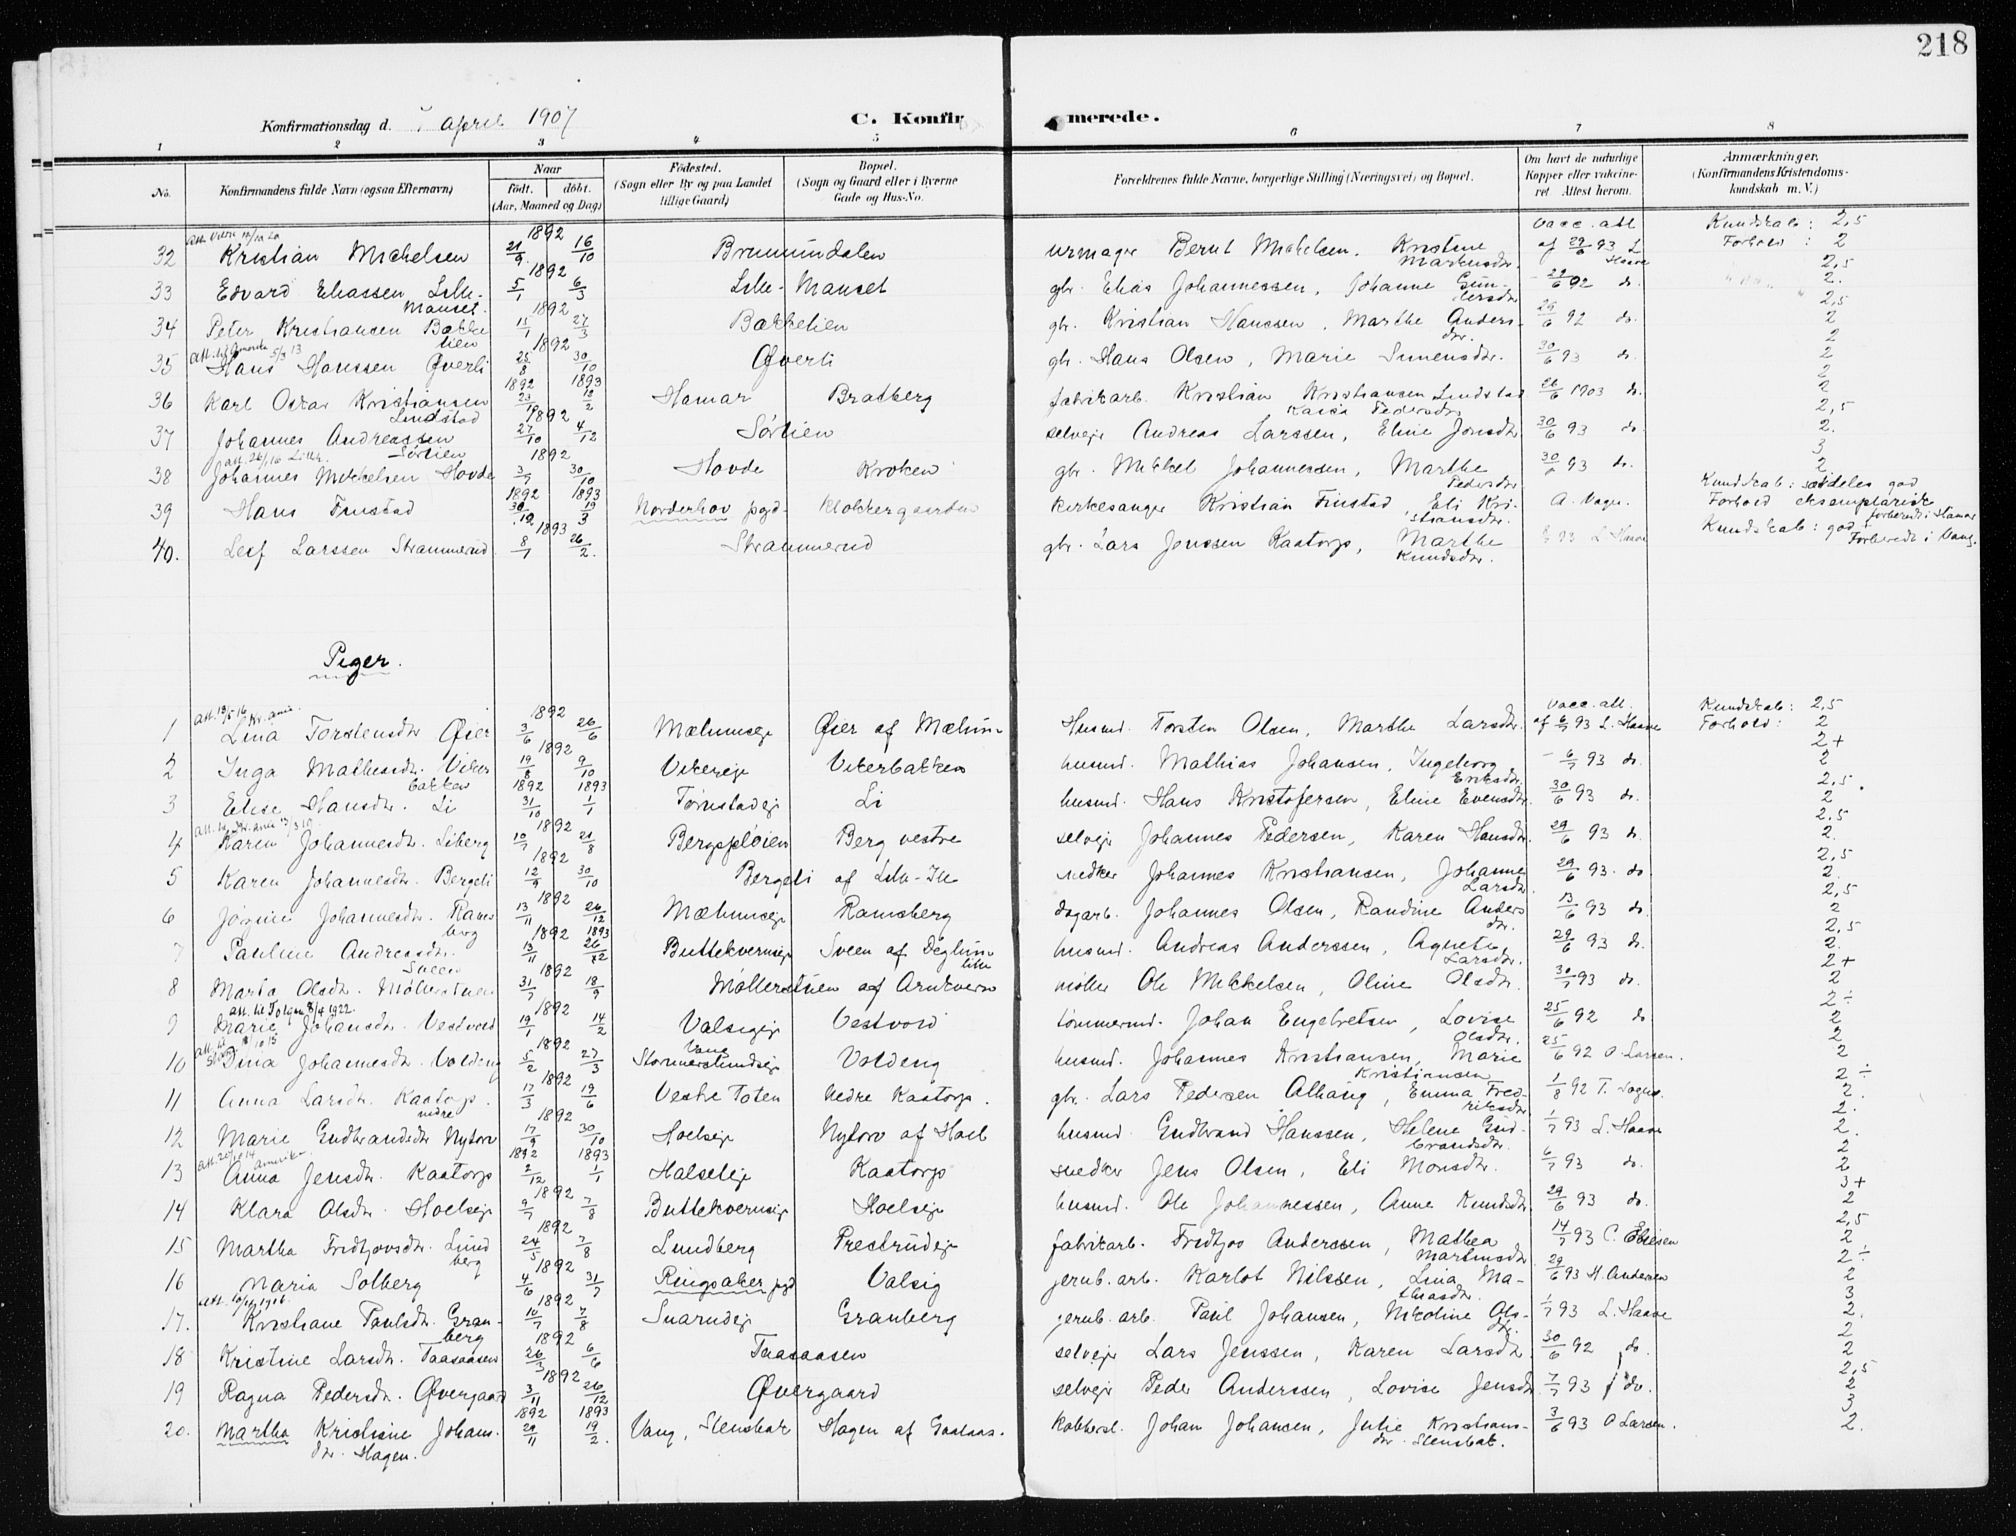 218
Konfirmationsdag d. 7 April 1907 C. Konfirmerede.
1 2 3 4 5 6 7 8
No. Konfirmandens fulde Navn (ogsaa Efternavn) Naar født. døbt. (Aar, Maaned og Dag) Fødested. (Sogn eller By og paa Landet tillige Gaard) Bopæl. (Sogn og Gaard eller i Byerne Gade og Hus-No. Forældrenes fulde Navne, borgerlige Stilling (Næringsvei) og Bopæl. Om havt de naturlige Kopper eller vaccineret. Attest herom. Anmærkninger, (Konfirmandens Kristendomskundskab m. V.)
32 Kristian Mickelsen 1892 21/9 16/10 Brumunddalen urmager Bernt Mickelsen, Kristine Martinsdtr. vacc. att. af 29/6 93 L. Haave Kundskab: 2,5 Forhold: 2
33 Edvard Eliassen Lille-Manset 1892 5/1 6/3 Lille-Manset gbr. Elias Johannessen, Johanne Gundersdtr. 29/6 92 do. 2,5 2.
34 Peter Kristiansen Bakkelien 1892 15/1 27/3 Bakkelien gbr. Kristian Hanssen, Marthe Andersdtr. 29/6 92 do. 2,5 2
35 Hans Hanssen Øverli 1892 25/8 30/10 Øverli gbr. Hans Olsen, Marie Simensdtr. 30/6 93 do. 2 2
36 Karl Oskar Kristiansen Lindstad 1892 23/10 1893 12/2 Hamar Bratberg fabrikarb. Kristian Kristiansen Lindstad Kaisa Pedersdtr. 26/6 1903 do. 2 2
37 Johannes Andreassen Sørlien 1892 27/10 4/12 Sørlien selvejr Andreas Larssen, Eline Jonsdtr. 30/6 93 do. 2,5 2.
38 Johannes Mikkelsen Hovde 1892 3/7 30/10 Hovde Kroken gbr. Mikkel Johannessen, Marthe Pedersdtr. 30/6 93 do. 3 2
39 Hans Finstad 1892 30/12 1893 19/3 Norderhov pgd. Klokkergaarden kirkesanger Kristian Finstad, Eli Kristiansdtr. A. Vagn. Kundskab: særdeles god Forhold eksemplarisk forberedt i Hamar
40. Leif Larssen Strammerud 1893 8/1 26/2. Strammerud gbr. Lars Jenssen Kaatorp, Marthe Knudsdtr. 93 L. Haave Kundskab: god, Forberedt i Vang.
Piger.
1 Lina Torstensdtr Øier 1892 3/6 26/6 Mælumseje Øier af Mælum Husmd. Torsten Olsen, Marthe Larsdtr. vacc. att. af 6/7 93 L. Haave Kundskab: 2,5 Forhold: 2
2 Inga Mathiasdtr. Vikerbakken 1892 19/8 9/10 Vikereje Vikerbakken husmd. Mathias Johansen, Ingeborg Eriksdtr. 6/7 93 do. 2+ 2
3 Elise Hansdtr. Li 1892 31/10 1893 1/1 Tørustadeje Li husmd. Hans Kristofersen, Eline Evensdtr. 30/6 93 do. 2,5 2
4 Karen Johannesdtr. Liberg 1892 10/7 21/8 Bergspløien Berg vestre selvejr Johannes Pedersen, Karen Hansdtr. 29/6 93 do. 2,5 2.
5 Karen Johannesdtr. Bergeli 1892 12/9 30/10 Bergeli af Lille-Ile snedker Johannes Kristiansen, Johanne Larsdtr. 29/6 93. do. 2,5 2.
6 Jørgine Johannesdtr. Ramsberg 1892 13/11 26/12 Mælumseje Ramsberg dagarb. Johannes Olsen, Randine Andersdtr. 13/6 93 do. 2,5 2
7 Pauline Andreasdtr. Sveen 1892 13/11 1893 26/12 Buttekvernseje Sveen af Deglum lille husmd. Andreas Anderssen, Agnete Larsdtr. 29/6 93 do. 2,5 2.
8 Marta Olsdtr. Møllerstuen 1892 31/7 18/9 Møllerstuen af Arnkvern møller Ole Mikkelsen, Oline Olsdtr. 30/7 93 do. 2+ 2
att. til Tolgen 8/4 1922.
9 Marie Johansdtr. Vestvold 1892 19/1 14/2 Valsigeje Vestvold tømmermd. Johan Engebretsen, Lovise Olsdtr. 25/6 92 do 2÷ 2
10 Dina Johannesdtr. Voldeng 1892 5/2 27/3 Vang Stormerstundeje Voldeng husmd. Johannes Kristiansen, Marie Kristiansen 25/6 92 O. Larsen. 2 2
11 Anna Larsdtr. Kaatorp nedre 1892 17/3 19/6 Vestre Toten Nedre Kaatorp. gbr. Lars Pedersen Alhaug, Emma Fredriksdtr 1/8 92 2÷ 2.
12 Marie Gudbrandsdtr Nytorv 1892 17/9 30/10 Hoelseje Nytorv af Hoel husmd. Gudbrand Hanssen, Helene Gudbrandsdtr. 1/7 93 L. Haave 2. 2.
13 Anna Jensdtr. Kaatorp 1892 2/12 1893 1/1 Halseteje Kaatorp snedker Jens Olsen, Eli Monsdtr. 6/7 93 do. 2 2
14 Klara Olsdtr. Hoelseje 1892 9/7 7/8 Buttekvernseje Hoelseje husmd. Ole Johannessen, Anne Knudsdtr. 29/6 93 do. 3+ 2
15 Martha Fridtjovsdtr. Lundberg 1892 24/5 7/8 Lundberg Prestrudeje fabrikarb. Fridtjov Anderssen, Mathea Martinsdtr. 14/7 93 C. Eliesen 2,5 2
16 Maria Solberg 1892 4/6 31/7 Ringsaker pgd Valsig jernb. arb. Karlot Nilssen, Lina Mathiasdtr. 29/6 93 H. Andersen 2÷ 2
17. Kristiane Paulsdtr. Granberg 1892 10/7 7/8 Snarudeje Granberg jernb. arb. Paul Johansen, Nikoline Olsdtr. 1/7 93 L. Haave 3 2.
18 Kristine Larsdtr. Taasaasen 1892 26/3 6/6 Taasaasen selvejr Lars Jenssen, Karen Larsdtr. 30/6 92 do. 2 2
19 Ragna Pedersdtr. Øvergaard 1892 3/11 26/12 Øvergaard selvejr Peder Anderssen, Lovise Jensdtr. 7/7 93 do. 2,5 2
20. Martha Kristine Johansdtr. Hagen. 1892 20/11 1893 19/2. Vang, Stensbak Hagen af Gaalaas. kobbersl. Johan Johansen, Julie Kristiansdtr. Stensbak. 3/6 93 O Larsen. 3 2.